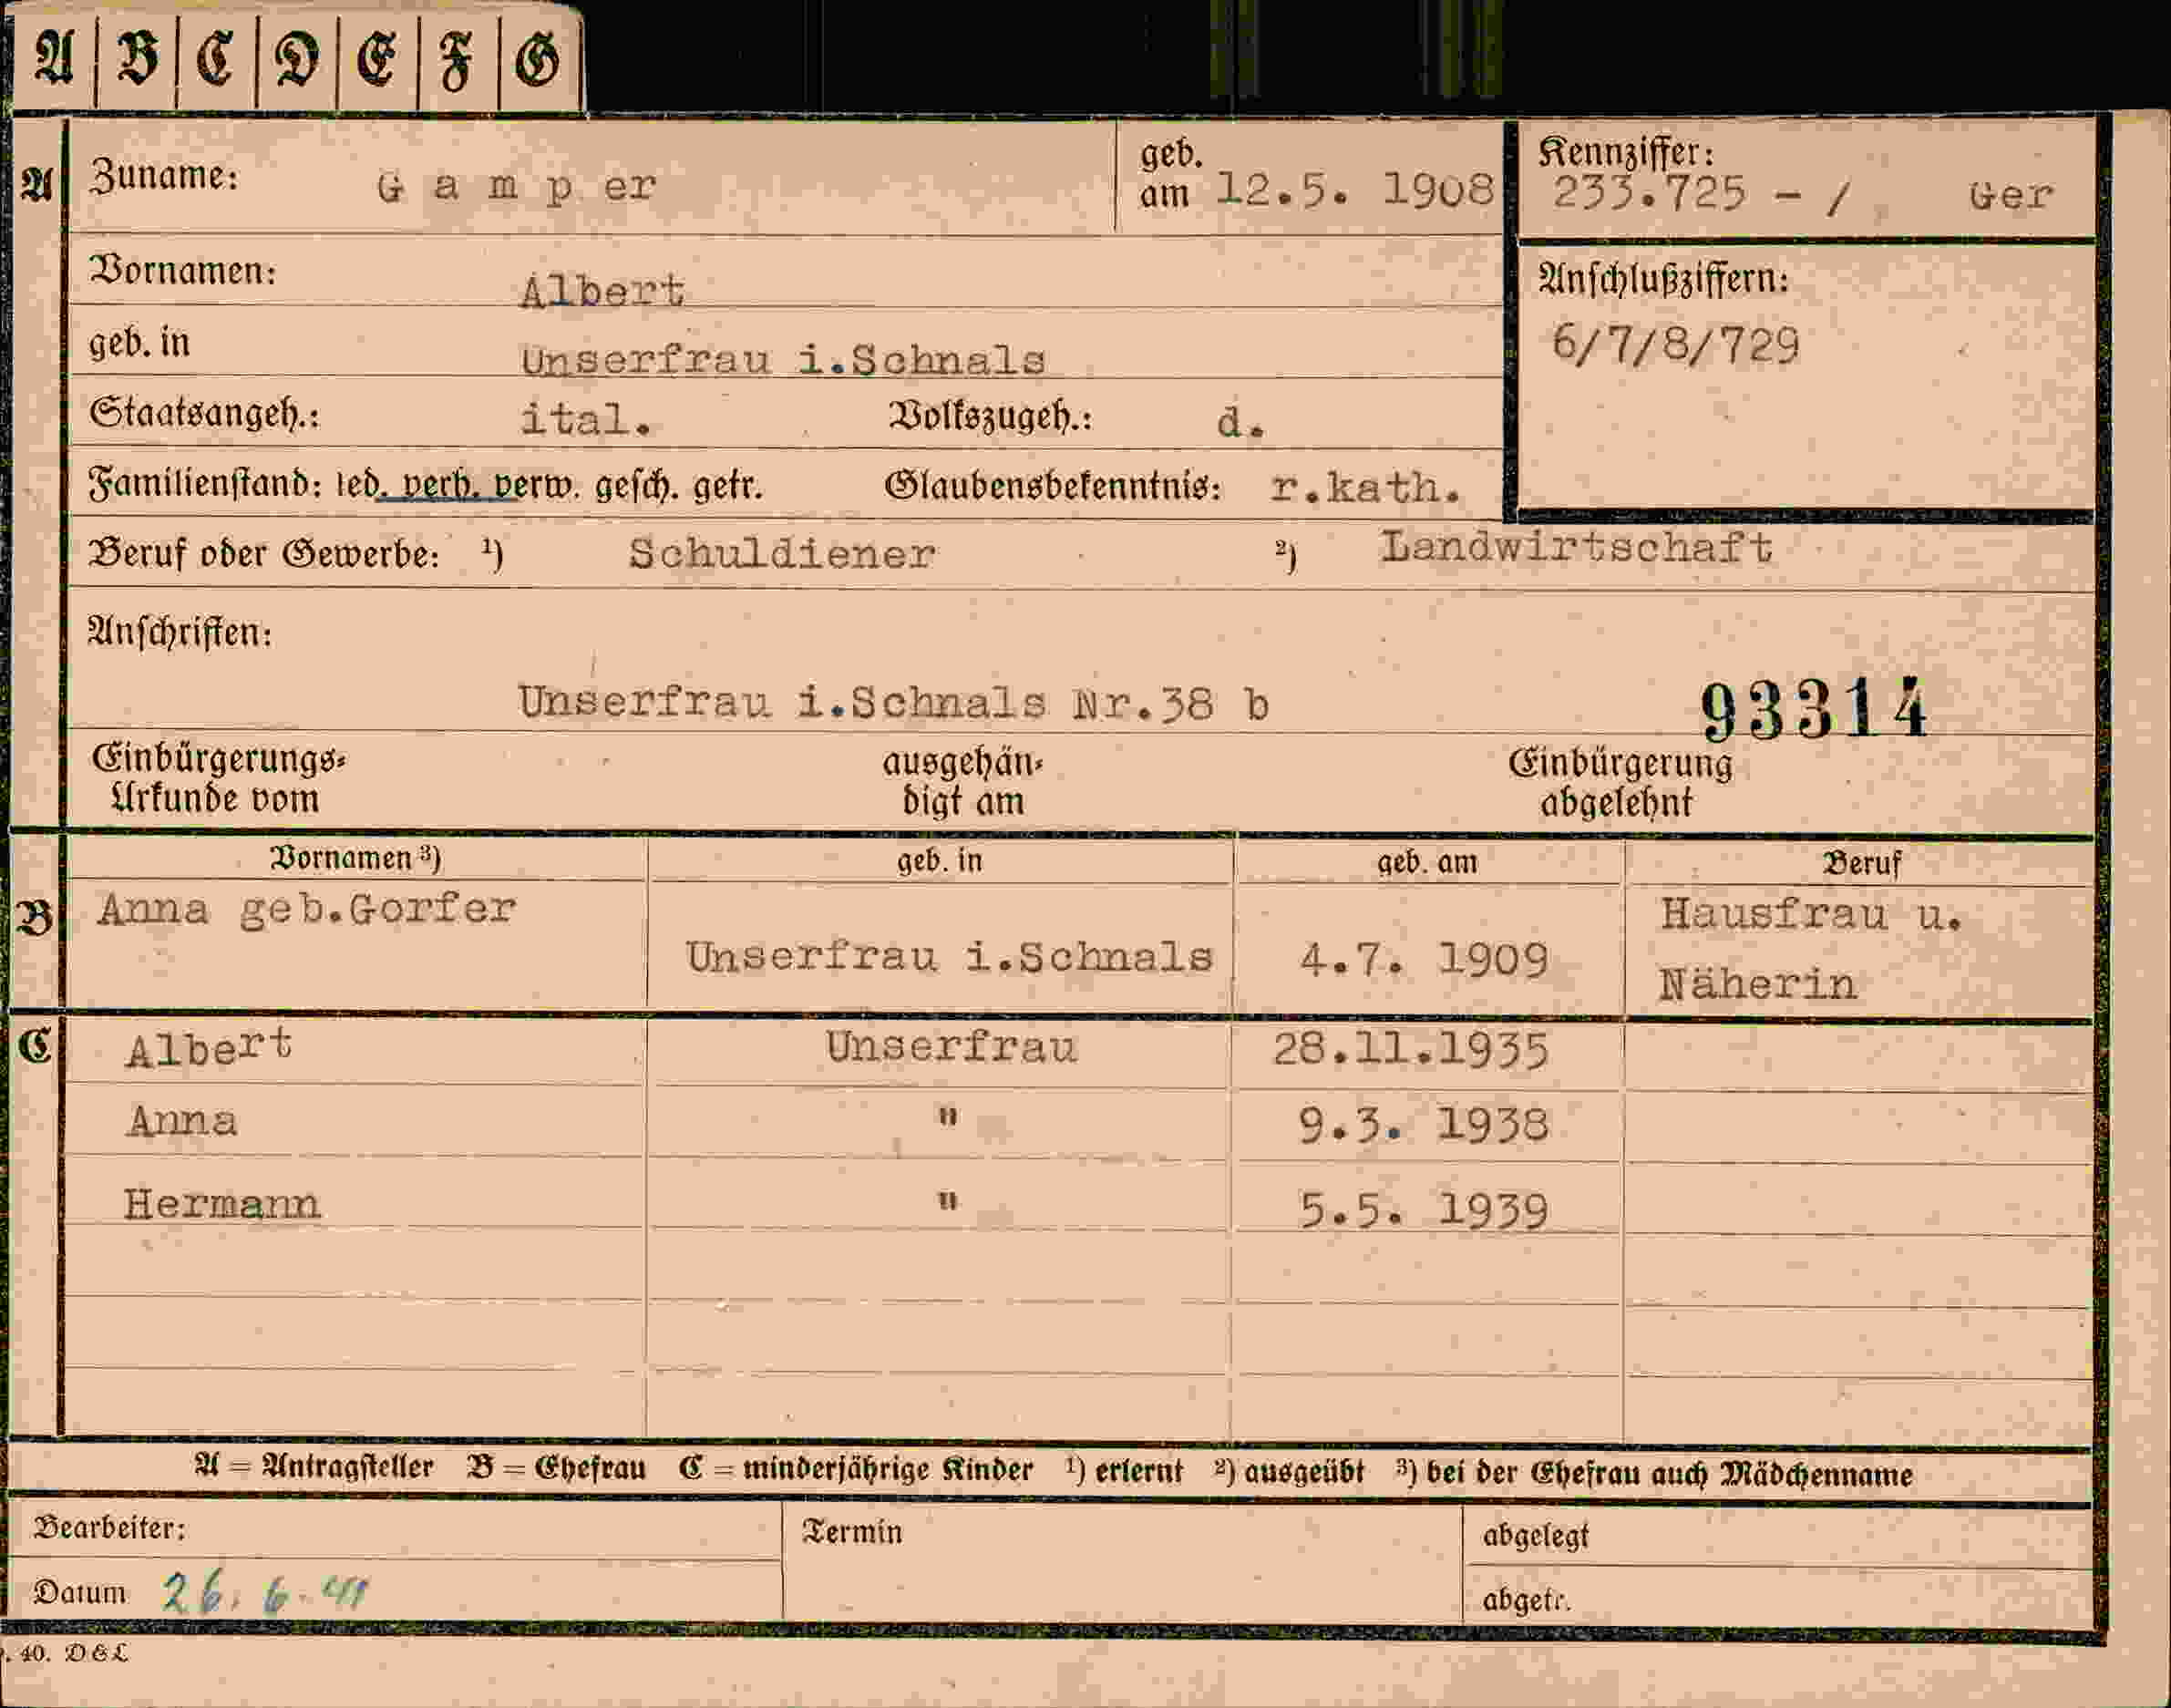 A B C D E F G
A Zuname: G a m p er geb. am 12.5. 1908 Kennziffer: 233.725 - / Ger
Vornamen: Albert Anschlußziffern:
geb. in Unserfrau i.Schnals 6/7/8/729
Staatsangeh.: ital. Volkszugeh.: d.
Familienstand: led. verh. verw. gesch. getr. Glaubensbekenntnis: r.kath.
Beruf oder Gewerbe: ¹) Schuldiener ²) Landwirtschaft
Anschriften:
Unserfrau i.Schnals Nr.38 b 93314
Einbürgerungs- ausgehän- Einbürgerung
Urkunde vom digt am abgelehnt
Vornamen ³) geb. in geb. am Beruf
B Anna geb.Gorfer Hausfrau u.
Unserfrau i.Schnals 4.7. 1909 Näherin
C Albert Unserfrau 28.11.1935
Anna " 9.3. 1938
Hermann " 5.5. 1939
A = Antragsteller B = Ehefrau C = minderjährige Kinder ¹) erlernt ²) ausgeübt ³) bei der Ehefrau auch Mädchenname
Bearbeiter: Termin abgelegt
Datum 26. 6. 41 abgetr.
. 40. D & L